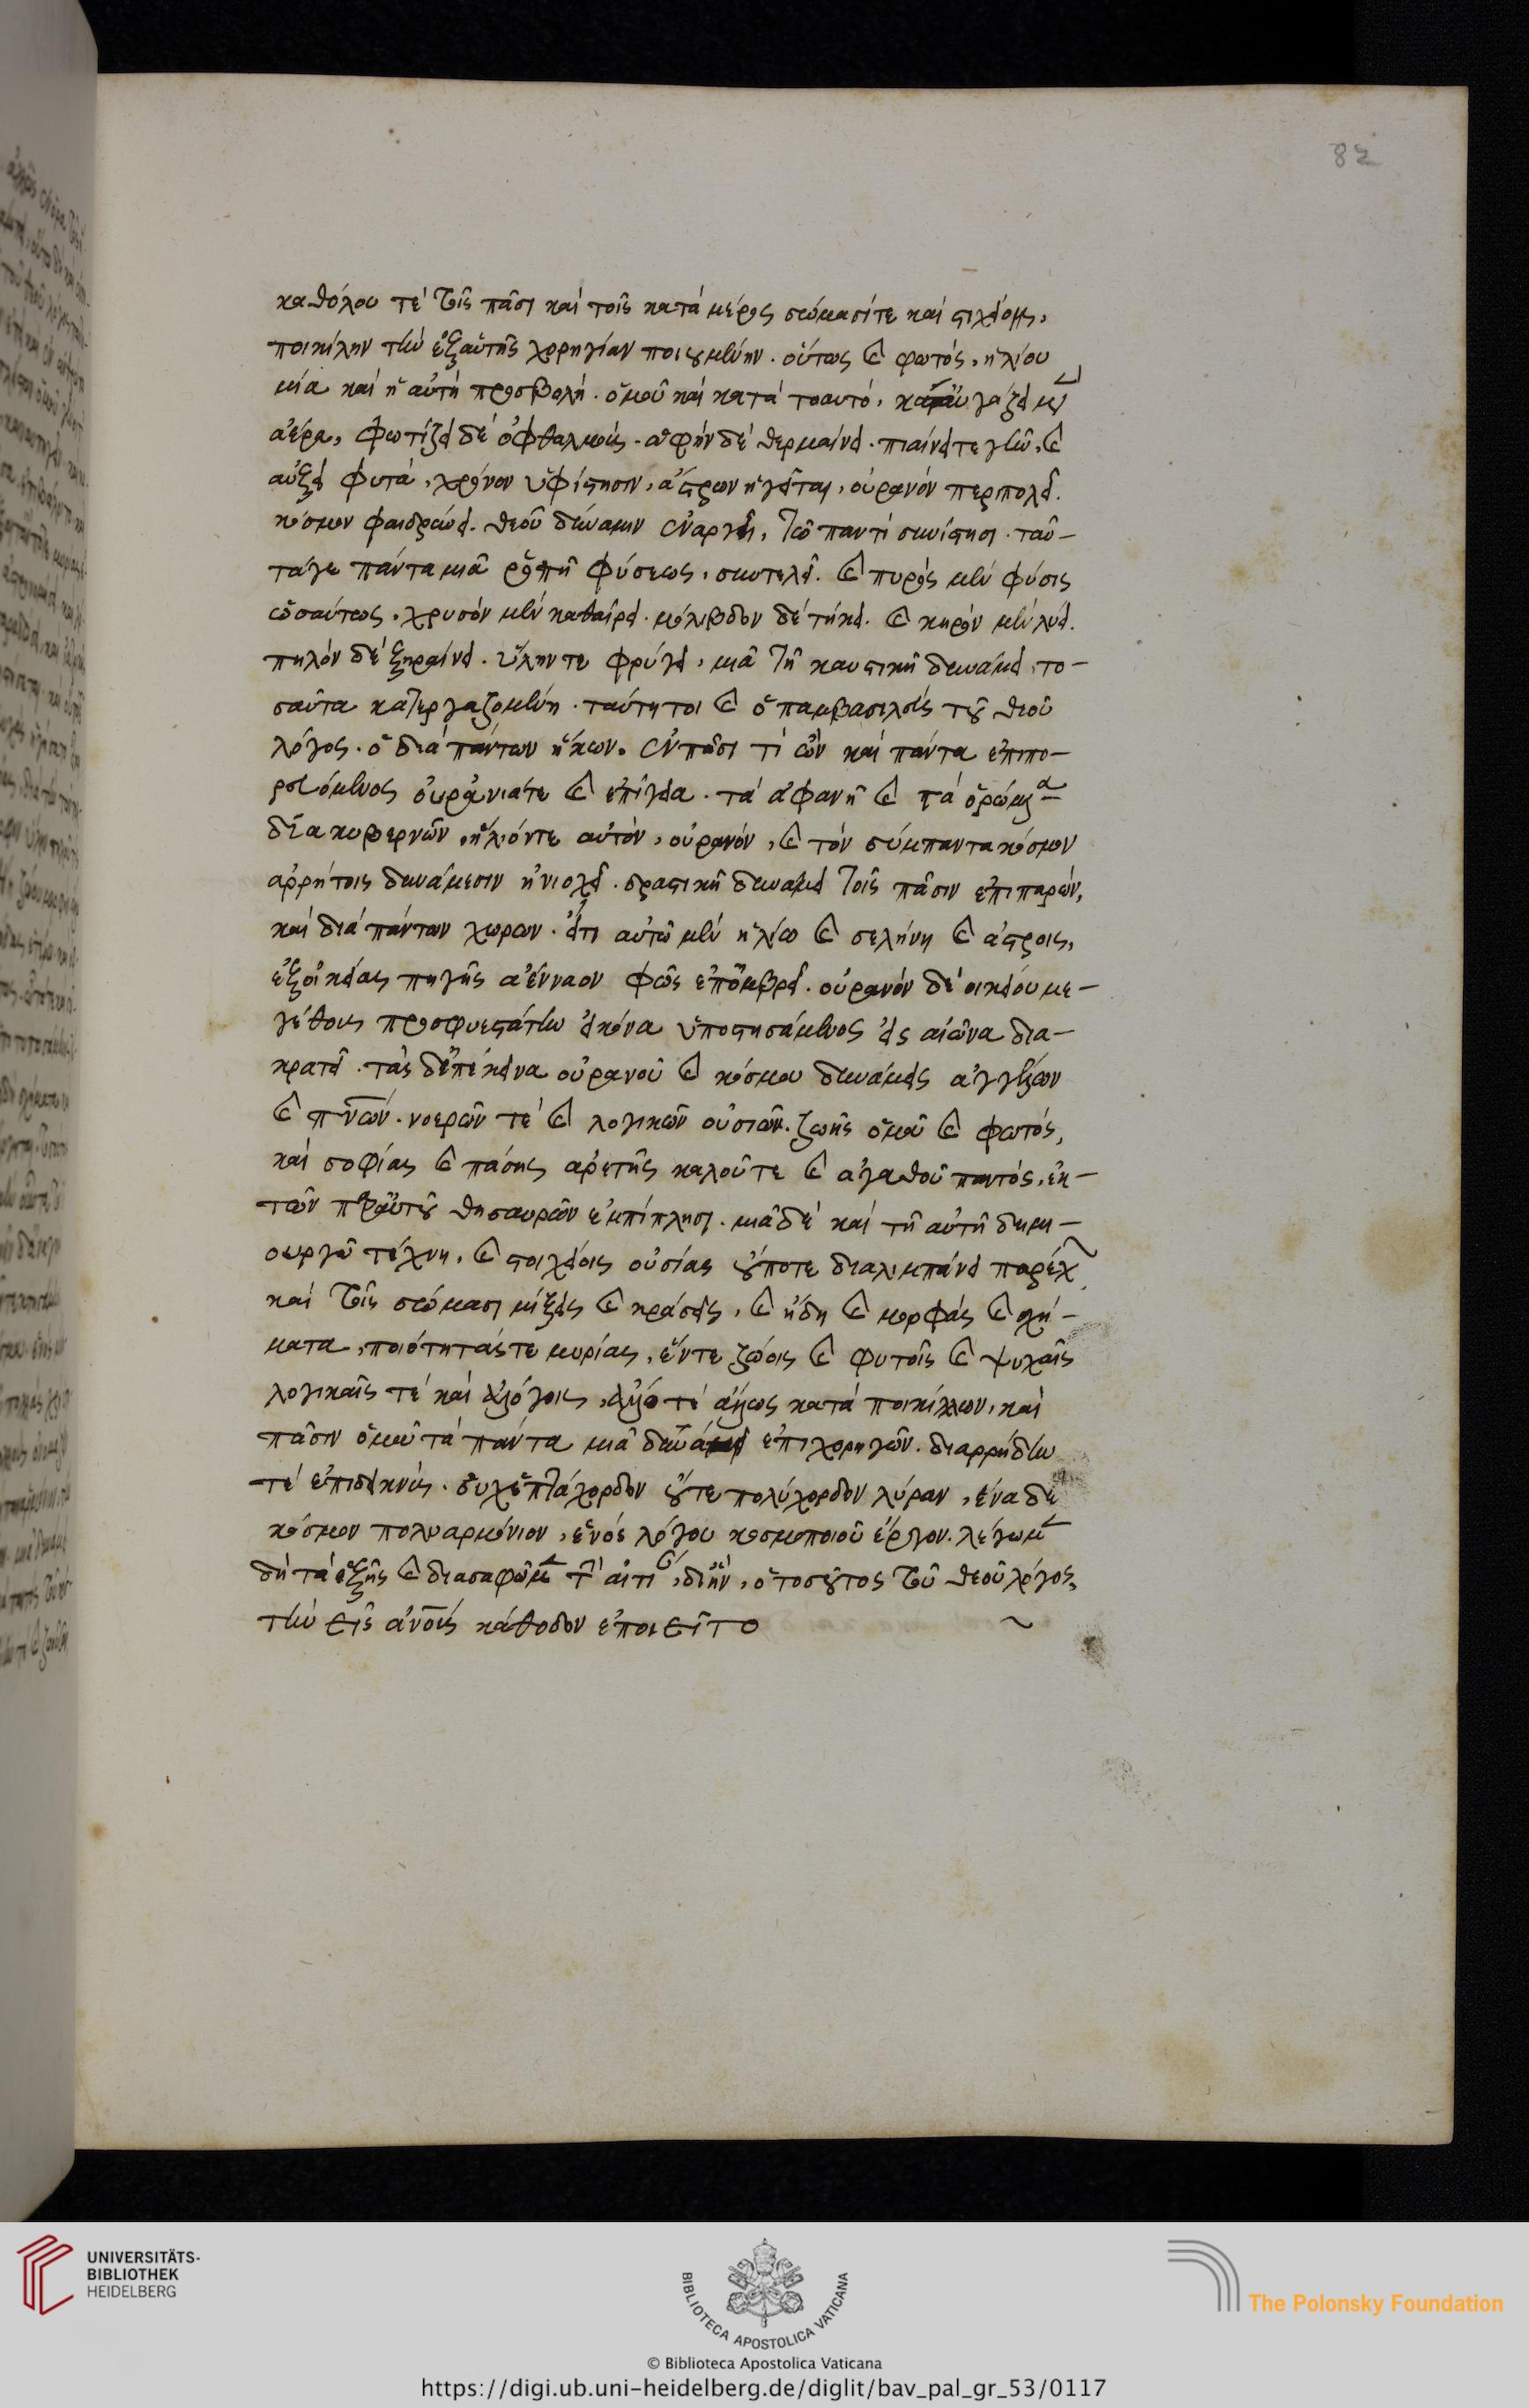 82
καθόλου τὲ τοῖς πᾶσι καὶ τοῖς κατὰ μέρος σώμασί τε καὶ στιχείοις,
ποικίλην τὴν ἐξ αὐτῆς χορηγίαν ποιουμένην. οὕτως καὶ φωτὸς, ἡλίου
μία καὶ ἡ αὐτὴ προσβολὴ. ὁμοῦ καὶ κατὰ τοαυτό, καταυγάζει μὲν
ἀέρα, φωτίζει δὲ ὀφθαλμοὺς. ἀφὴν δὲ θερμαίνει. πιαίνει τε γῆν, καὶ
αὔξει φυτά, χρόνον ὑφίστησιν, ἄστρων ἡγεῖται, οὐρανὸν περιπολεῖ.
κόσμον φαιδρύνει. θεοῦ δύναμιν ἐναργῆ, τῶ παντὶ συνίστησι. ταῦ-
τά γε πάντα μιᾶ ῥοπῆ φύσεως, συντελεῖ. καὶ πυρὸς μὲν φύσις
ὡσαύτως, χρυσὸν μὲν καθαίρει. μόλιβδον δὲ τήκει. καὶ κηρὸν μὲν λύει.
πηλὸν δὲ ξηραίνει. ὕλην τε φρύγει, μιᾶ τῆ καυστικῆ δυνάμει, το-
σαῦτα κατεργαζομένη. ταύτη τοι καὶ ὁ παμβασιλεὺς τοῦ θεοῦ
λόγος. ὁ διὰ πάντων ἥκων. ἐν πᾶσι τὶ ὢν καὶ πάντα ἐπιπο-
ρευόμενος οὐράνιά τε καὶ ἐπίγεια. τὰ ἀφανῆ καὶ τὰ ὁρώμενα
διακυβερνῶν, ἥλιόν τε αὐτὸν, οὐρανὸν, καὶ τὸν σύμπαντα κόσμον
ἀρρήτοις δυνάμεσιν ἡνιοχεῖ. δραστικῆ δυνάμει τοῖς πᾶσιν ἐπιπαρὼν,
καὶ διὰ πάντων χωρων. εἶτι αὐτῶ μὲν ἡλίω καὶ σελήνη καὶ ἄστροις,
ἐξ οἰκείας πηγῆς ἀένναον φῶς ἐπομβρεῖ. οὐρανὸν δὲ οἰκείου με-
γέθους προσφυεστάτην εἰκόνα ὑποστησάμενος εἰς αἰῶνα δια-
κρατεῖ. τὰς δ' ἐπέκεινα οὐρανοῦ καὶ κόσμου δυνάμεις ἀγγέλων
καὶ πνων. νοερῶν τὲ καὶ λογικῶν οὐσιῶν. ζωῆς ὁμοῦ καὶ φωτός,
καὶ σοφίας καὶ πάσης ἀρετῆς καλοῦ τε καὶ ἀγαθοῦ παντός, ἐκ
τῶν παρ' αὐτοῦ θησαυρῶν ἐμπίπλησι. μιᾶ δὲ καὶ τῆ αὐτῆ δημι-
ουργῶ τέχνη, καὶ στοιχείοις οὐσίας οὔποτε διαλιμπάνει παρέχων
καὶ τοῖς σώμασι μίξεις καὶ κράσεις, καὶ ἤδη καὶ μορφὰς καὶ σχή-
ματα, ποιότητάς τε μυρίας, ἔν τε ζώοις καὶ φυτοῖς καὶ ψυχαῖς
λογικαῖς τὲ καὶ ἀλόγοις, ἄλλοτέ ἄλλως κατὰ ποικίλλων, καὶ
πᾶσιν ὁμοῦ τὰ πάντα μιᾶ δυνάμει ἐπιχορηγῶν. διαρρήδην
τὲ ἐπιδεικνὺς. οὐχ ἑπτάχορδον οὔτε πολύχορδον λύραν, ἕνα δὲ
κόσμον πολυαρμόνιον, ἑνὸς λόγου κοσμοποιοῦ ἔργον. λέγωμεν
δὴ τὰ ἑξῆς καὶ διασαφῶμεν τὴν αἰτίαν, δι' ἣν, ὁ τοσοῦτος τοῦ θεοῦ λόγος,
τὴν εἰς ἀνους κάθοδον ἐποιεῖτο ~
UNIVERSITÄTS-
BIBLIOTHEK
HEIDELBERG
BIBLIOTECA APOSTOLICA VATICANA
The Polonsky Foundation
© Biblioteca Apostolica Vaticana
https://digi.ub.uni-heidelberg.de/diglit/bav_pal_gr_53/0117